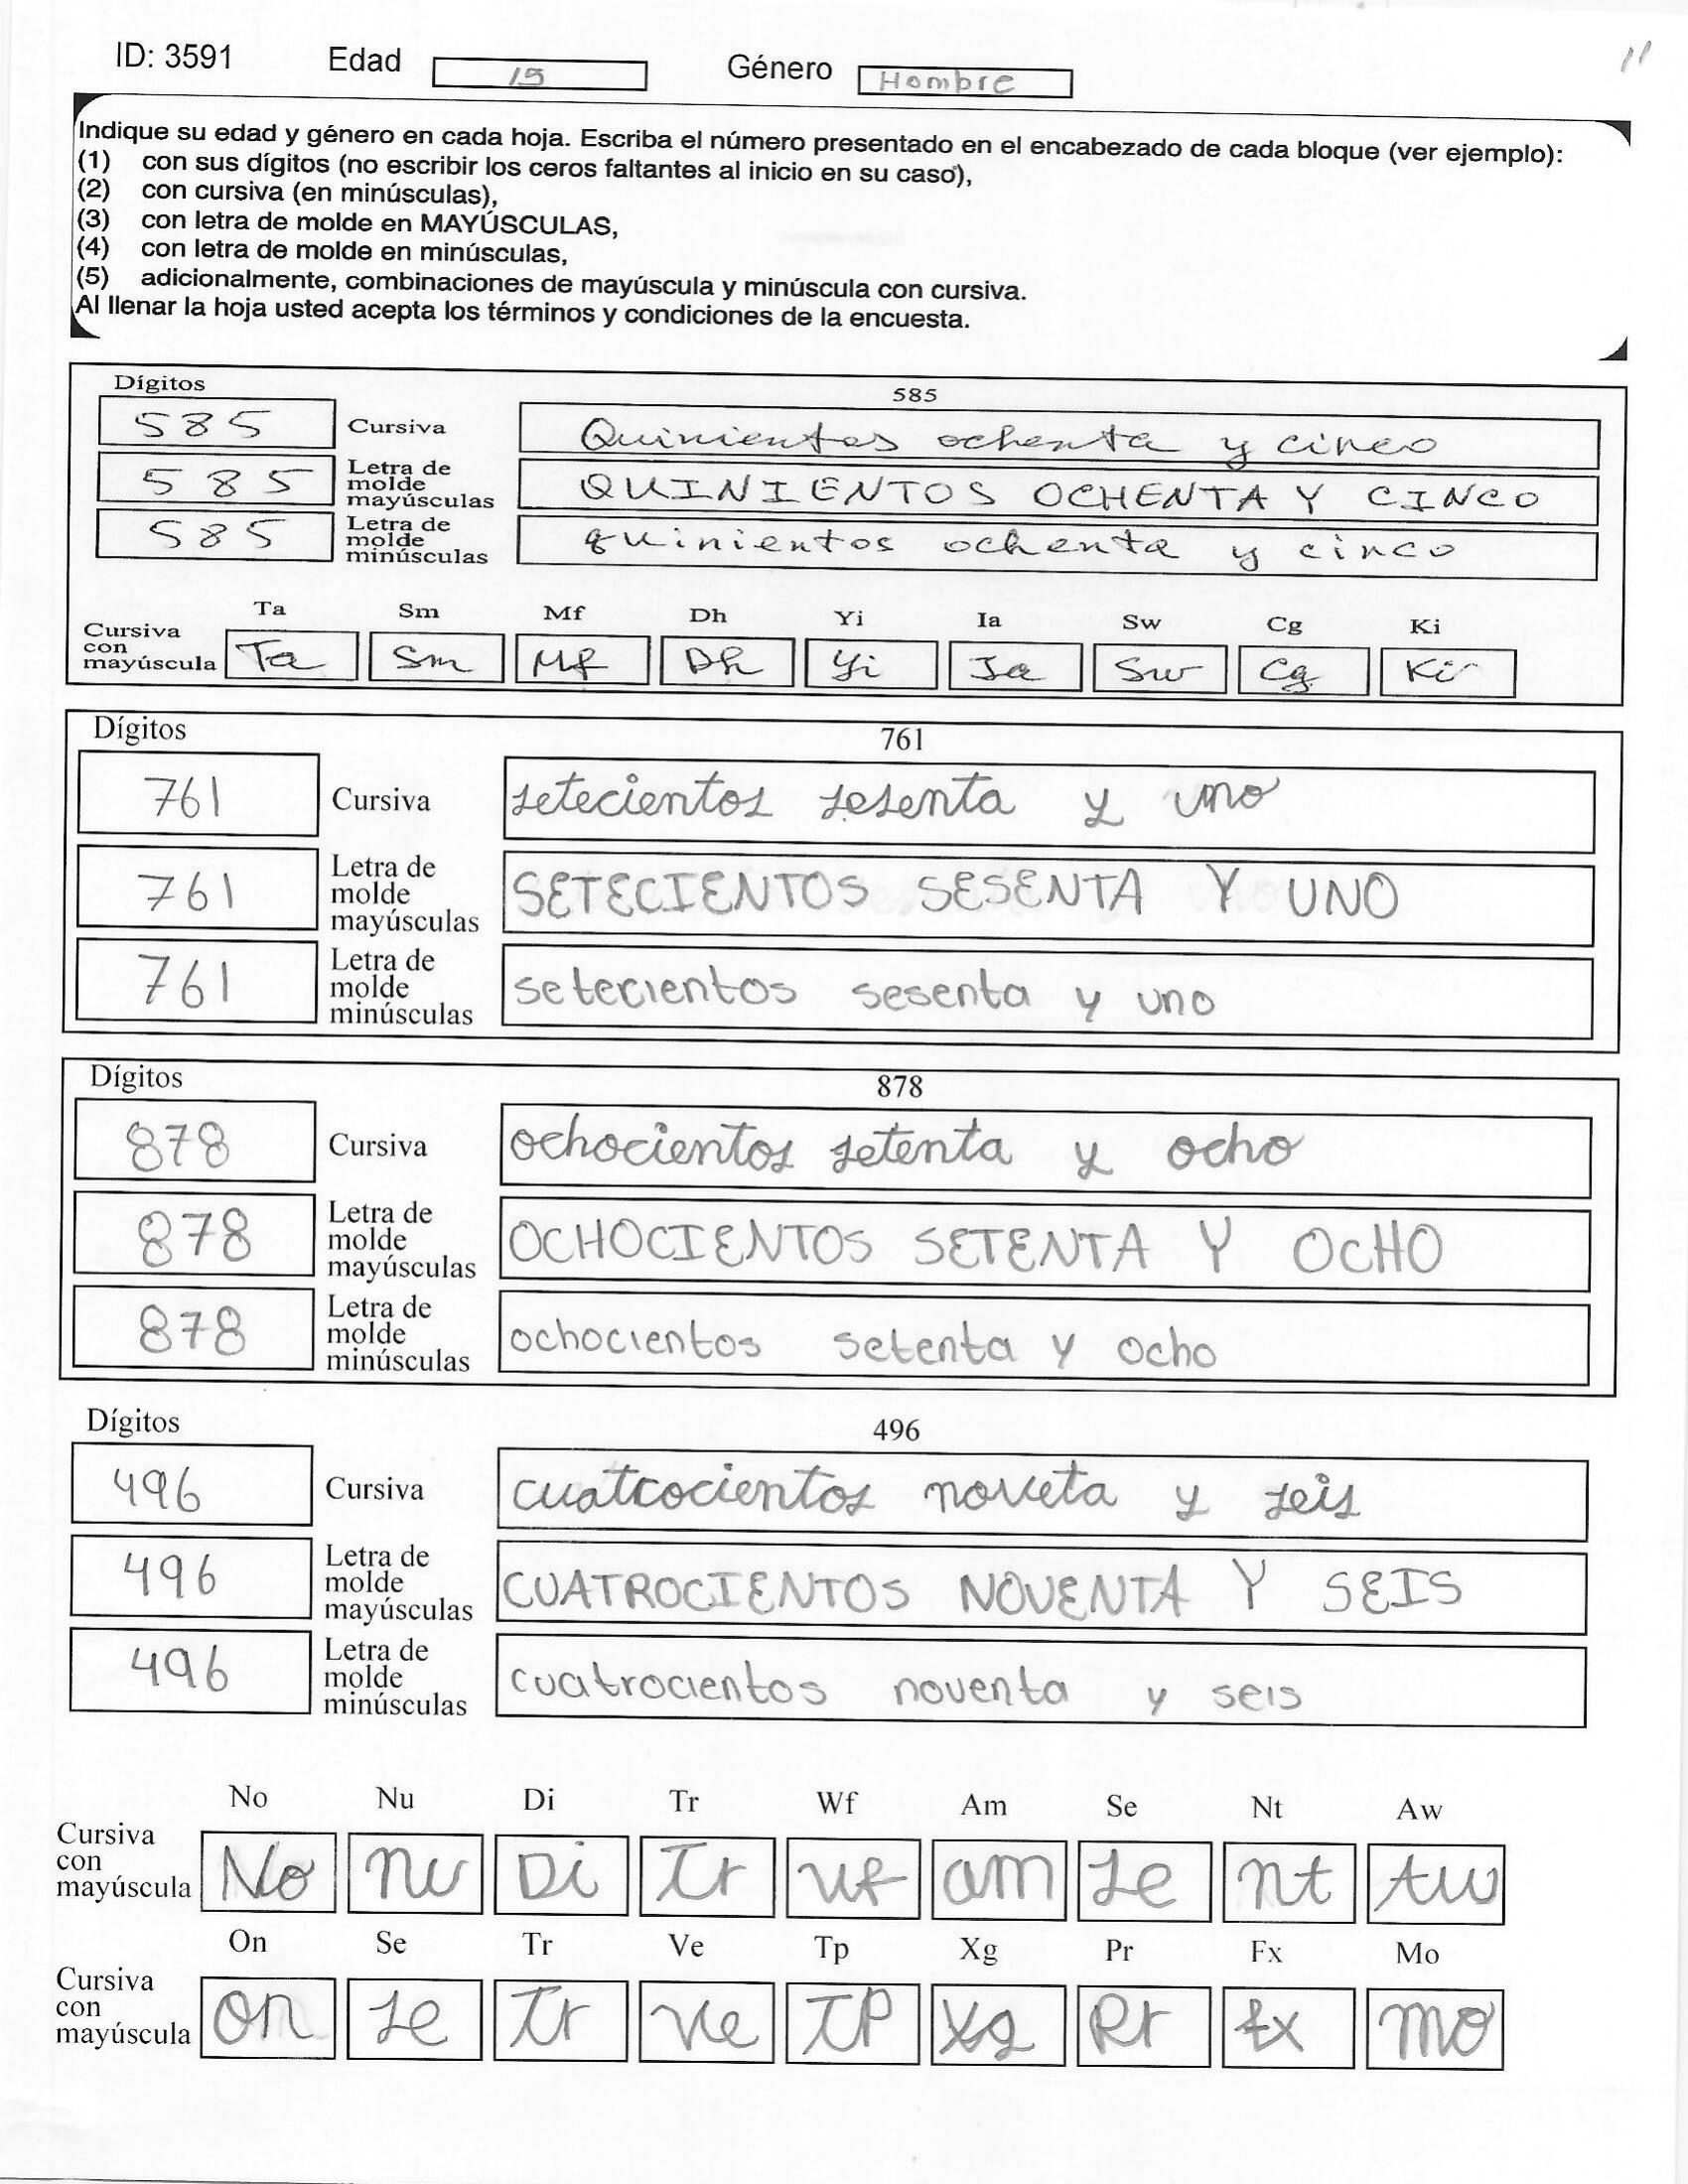 ID: 3591 Edad 15 Género Hombre 11
Indique su edad y género en cada hoja. Escriba el número presentado en el encabezado de cada bloque (ver ejemplo):
(1) con sus dígitos (no escribir los ceros faltantes al inicio en su caso),
(2) con cursiva (en minúsculas),
(3) con letra de molde en MAYÚSCULAS,
(4) con letra de molde en minúsculas,
(5) adicionalmente, combinaciones de mayúscula y minúscula con cursiva.
Al llenar la hoja usted acepta los términos y condiciones de la encuesta.
Dígitos 585
585 Cursiva Quinientos ochenta y cinco
585 Letra de molde mayúsculas QUINIENTOS OCHENTA Y CINCO
585 Letra de molde minúsculas quinientos ochenta y cinco
Ta Sm Mf Dh Yi Ia Sw Cg Ki
Cursiva con mayúscula Ta Sm Mf Dh Yi Ia Sw Cg Ki
Dígitos 761
761 Cursiva setecientos sesenta y uno
761 Letra de molde mayúsculas SETECIENTOS SESENTA Y UNO
761 Letra de molde minúsculas setecientos sesenta y uno
Dígitos 878
878 Cursiva ochocientos setenta y ocho
878 Letra de molde mayúsculas OCHOCIENTOS SETENTA Y OCHO
878 Letra de molde minúsculas ochocientos setenta y ocho
Dígitos 496
496 Cursiva cuatrocientos noveta y seis
496 Letra de molde mayúsculas CUATROCIENTOS NOVENTA Y SEIS
496 Letra de molde minúsculas cuatrocientos noventa y seis
No Nu Di Tr Wf Am Se Nt Aw
Cursiva con mayúscula No nu Di Tr wf am se nt Aw
On Se Tr Ve Tp Xg Pr Fx Mo
Cursiva con mayúscula On se Tr ve TP Xg Pr fx mo